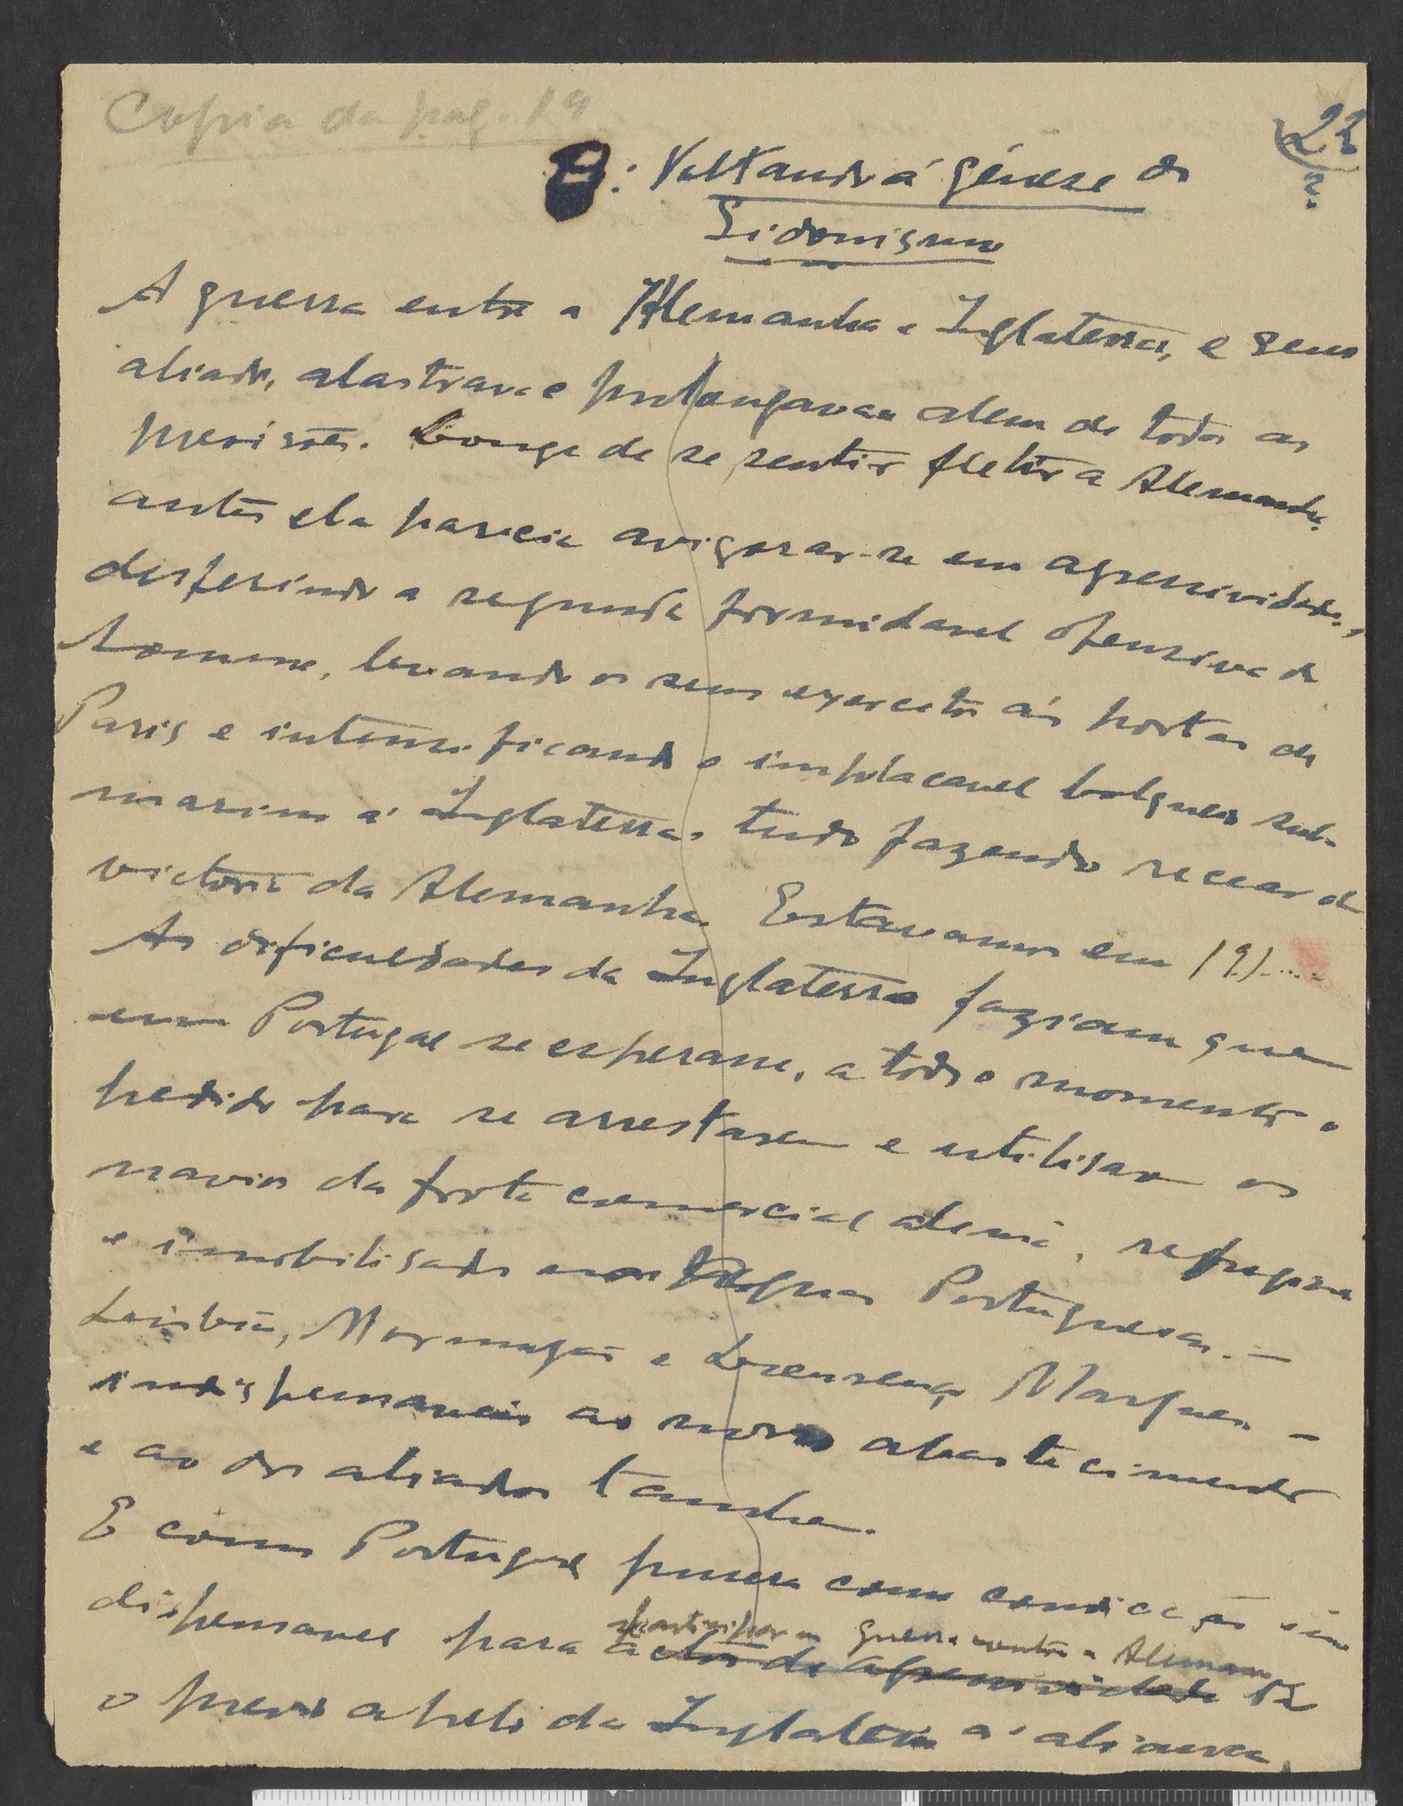 Copia da pag. 19
22
2.
B: Voltando á génese do
Sidonismo
A guerra entre a Alemanha e Inglaterra, e seus
aliados, alastrava e prolongava-se alem de todas as
previsões. Longe de se sentir fletir a Alemanha,
antes ela parecia avigorar-se em agressividade,
desferindo a segunda formidavel ofensiva do
Somme, levando os seus exercitos ás portas de
Paris e intensificando o implacavel bolqueio sub-
marino á Inglaterra, tudo fazendo recear da
victoria da Alemanha. Estavamos em 191....
As dificuldades da Inglaterra faziam que
em Portugal se esperasse, a todo o momento o
pedido para se arrestarem e utilisarem os
navios da frota comercial alemã, refugiada
e imobilisada nas Aguas Portuguesas. —
Lisbôa, Mormugão e Lourenço Marques —
indispensaveis ao nosso abastecimento
e ao dos aliados tambem.
E como Portugal pusera como condicção in-
participar na guerra contra a Alemanha
dispensavel para actos de agressividade
o previo apelo da Inglaterra á aliança